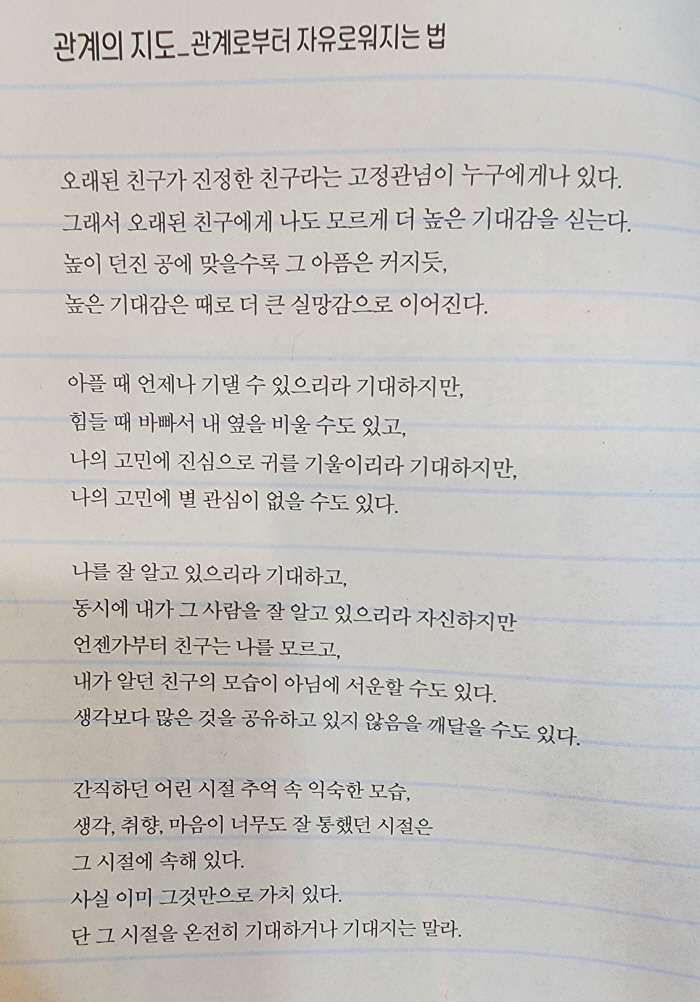 관계의 지도_관계로부터 자유로워지는 법
오래된 친구가 진정한 친구라는 고정관념이 누구에게나 있다.
그래서 오래된 친구에게 나도 모르게 더 높은 기대감을 싣는다.
높이 던진 공에 맞을수록 그 아픔은 커지듯,
높은 기대감은 때로 더 큰 실망감으로 이어진다.
아플 때 언제나 기댈 수 있으리라 기대하지만,
힘들 때 바빠서 내 옆을 비울 수도 있고,
나의 고민에 진심으로 귀를 기울이리라 기대하지만,
나의 고민에 별 관심이 없을 수도 있다.
나를 잘 알고 있으리라 기대하고,
동시에 내가 그 사람을 잘 알고 있으리라 자신하지만
언젠가부터 친구는 나를 모르고,
내가 알던 친구의 모습이 아님에 서운할 수도 있다.
생각보다 많은 것을 공유하고 있지 않음을 깨달을 수도 있다.
간직하던 어린 시절 추억 속 익숙한 모습,
생각, 취향, 마음이 너무도 잘 통했던 시절은
그 시절에 속해 있다.
사실 이미 그것만으로 가치 있다.
단 그 시절을 온전히 기대하거나 기대지는 말라.